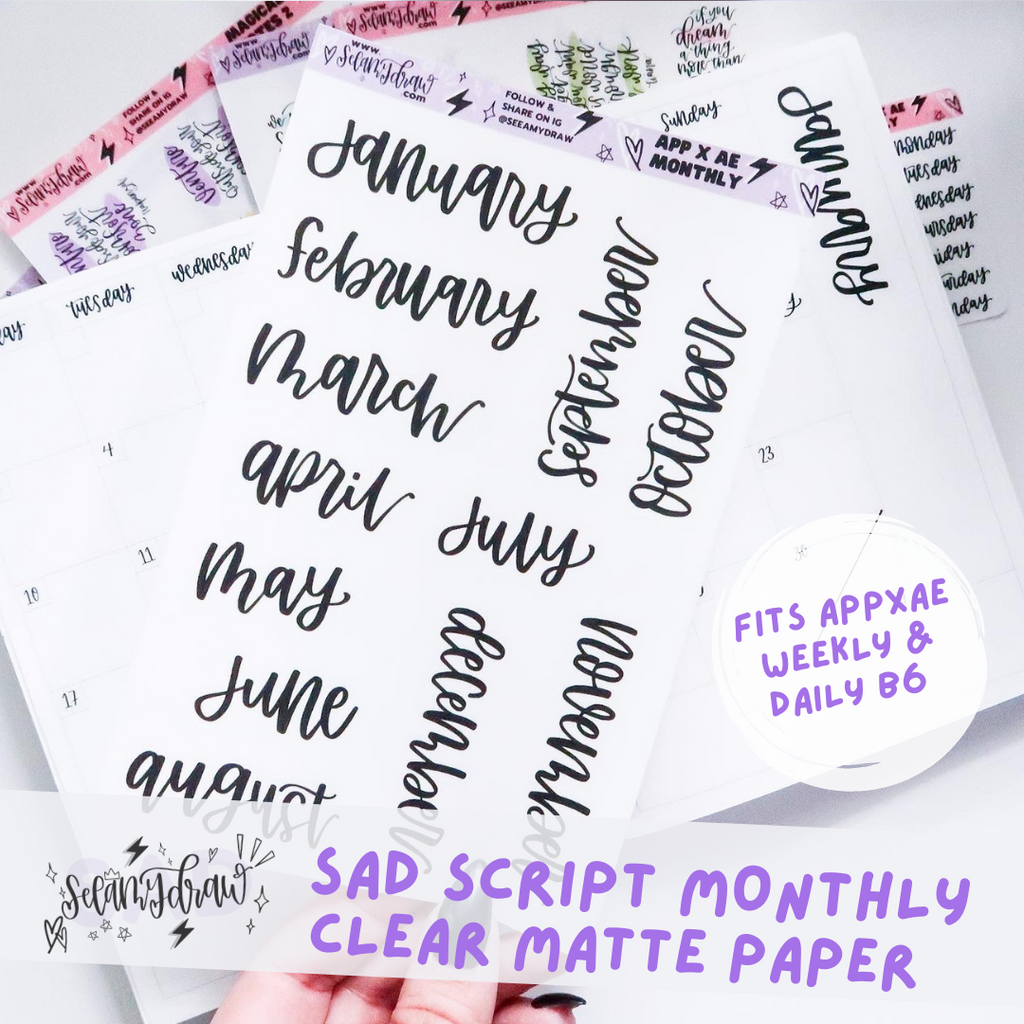 MAGICAL
www.
SeeamyDraw
.com
FOLLOW &
SHARE ON IG
@SEEAMYDRAW
APP X AE
MONTHLY
january
february
march
april
may
june
august
september
october
july
december
november
www.
SeeamyDraw
.com
FOLLOW &
SHARE ON IG
@SEEAMYDRAW
if you
dream
a thing
more than
sunday
january
monday
tuesday
wednesday
tuesday
4
11
10
17
23
FITS APPXAE
WEEKLY &
DAILY B6
SeeamyDraw
SAD SCRIPT MONTHLY
CLEAR MATTE PAPER